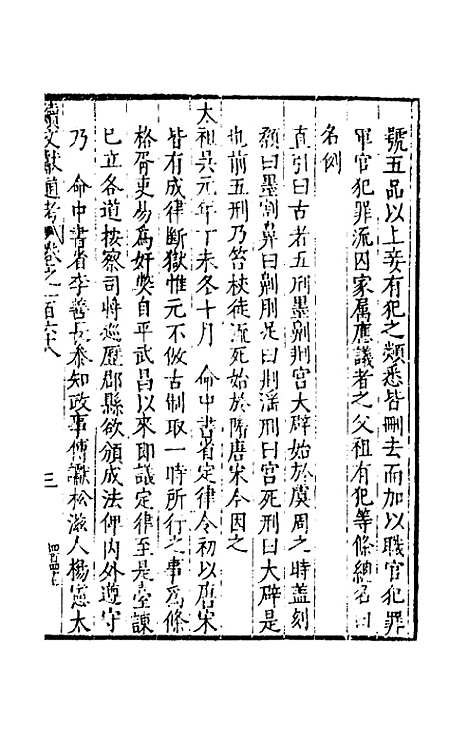 號五品以上妾有犯之類悉皆刪去而加以職官犯罪
軍官犯罪流囚家属應議者之父祖有犯等條總名曰
名例
直引曰古者五刑墨劓剕宮大辟始於虞周之時盖刻
顙曰墨割鼻曰劓刖足曰剕滛刑曰宮死刑曰大辟是
也前五刑乃笞杖徒流死始於隋唐宋今因之
太祖吳元年丁未冬十月 命中書省定律令初以唐宋
皆有成律斷獄惟元不倣古制取一時所行之事爲條
格胥吏易爲奸獘自平武昌以來即議定律至是臺諫
已立各道按察司將巡歷郡縣欲頒成法俾内外遵守
乃 命中書省李善長叅知政事傅瓛松滋人楊憲太
續文獻通考 卷之一百六十八 三